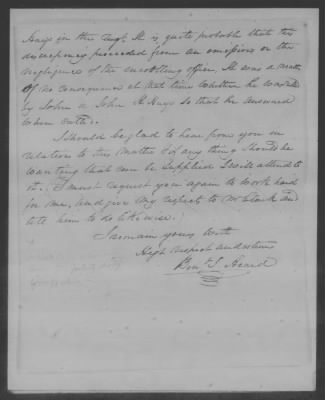 Hays in the
It is quite probable that this
discrepancy proceeded from an omission or the
negligence of the mustering officer. It was a matter
of no consequence at that time whether he was
by John or John H Hays so that he answered
when called.
I should be glad to hear from you in
relation to this matter & if any thing should be
wanting that can be supplied I will attend to
it. I must request you again to work hard
for me, and give my respects to Mr Clark and
tell him to do likewise.
I remain yours with
High respect and esteem
Benj. S. Heard